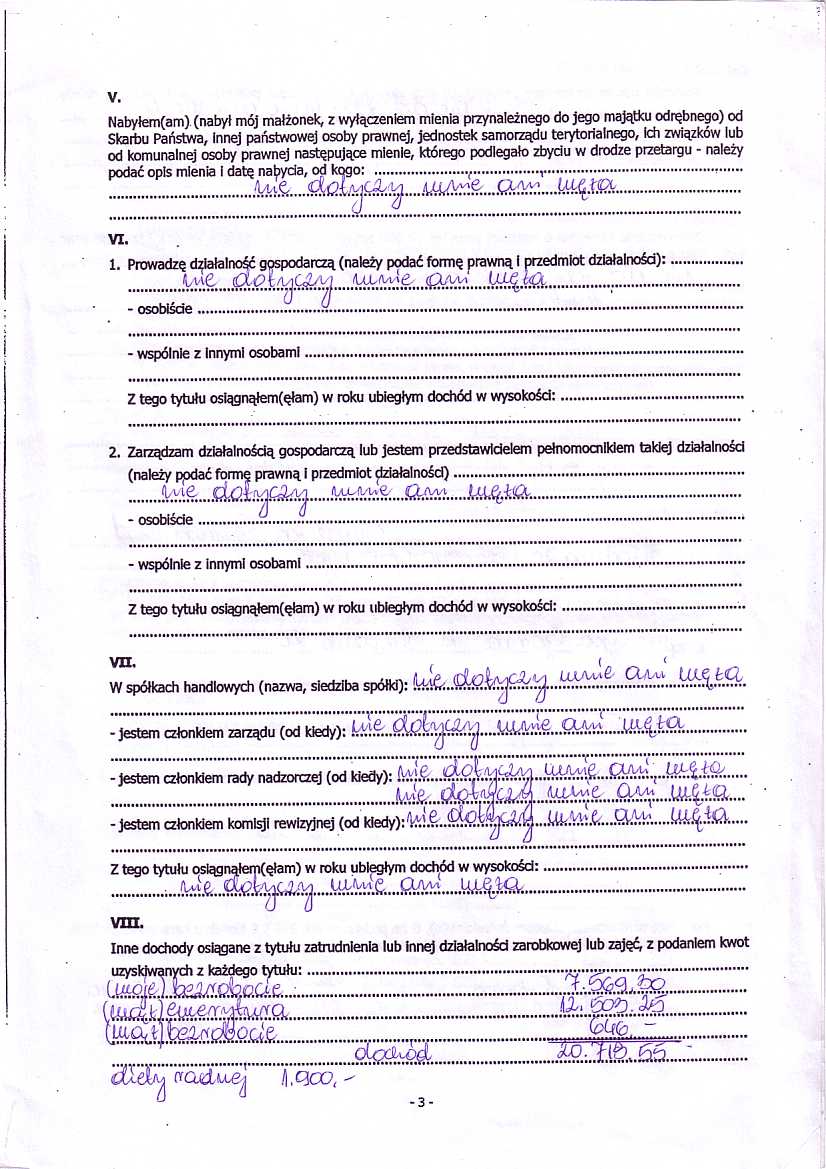 V.
Nabyłem(am) (nabył mój małżonek, z wyłączeniem mienia przynależnego do jego majątku odrębnego) od
Skarbu Państwa, innej państwowej osoby prawnej, jednostek samorządu terytorialnego, ich związków lub
od komunalnej osoby prawnej następujące mienie, którego podlegało zbyciu w drodze przetargu - należy
podać opis mienia i datę nabycia, od kogo:
nie dotyczy mnie ani męża
VI.
1. Prowadzę działalność gospodarczą (należy podać formę prawną i przedmiot działalności):
nie dotyczy mnie ani męża
- osobiście
- wspólnie z innymi osobami
Z tego tytułu osiągnąłem(ęłam) w roku ubiegłym dochód w wysokości:
2. Zarządzam działalnością gospodarczą lub jestem przedstawicielem pełnomocnikiem takiej działalności
(należy podać formę prawną i przedmiot działalności)
nie dotyczy mnie ani męża
- osobiście
- wspólnie z innymi osobami
Z tego tytułu osiągnąłem(ęłam) w roku ubiegłym dochód w wysokości:
VII.
W spółkach handlowych (nazwa, siedziba spółki): nie dotyczy mnie ani męża
- jestem członkiem zarządu (od kiedy): nie dotyczy mnie ani męża
- jestem członkiem rady nadzorczej (od kiedy): nie dotyczy mnie ani męża
nie dotyczy mnie ani męża
- jestem członkiem komisji rewizyjnej (od kiedy): nie dotyczy mnie ani męża
Z tego tytułu osiągnąłem(ęłam) w roku ubiegłym dochód w wysokości:
nie dotyczy mnie ani męża
VIII.
Inne dochody osiągane z tytułu zatrudnienia lub innej działalności zarobkowej lub zajęć, z podaniem kwot
uzyskiwanych z każdego tytułu:
(moje) bezrobocie 7.569,30
(mąż) emerytura 12.503.25
(mąż) bezrobocie 646 -
dochód 20.718.55 -
diety radnej 1.900,-
- 3 -